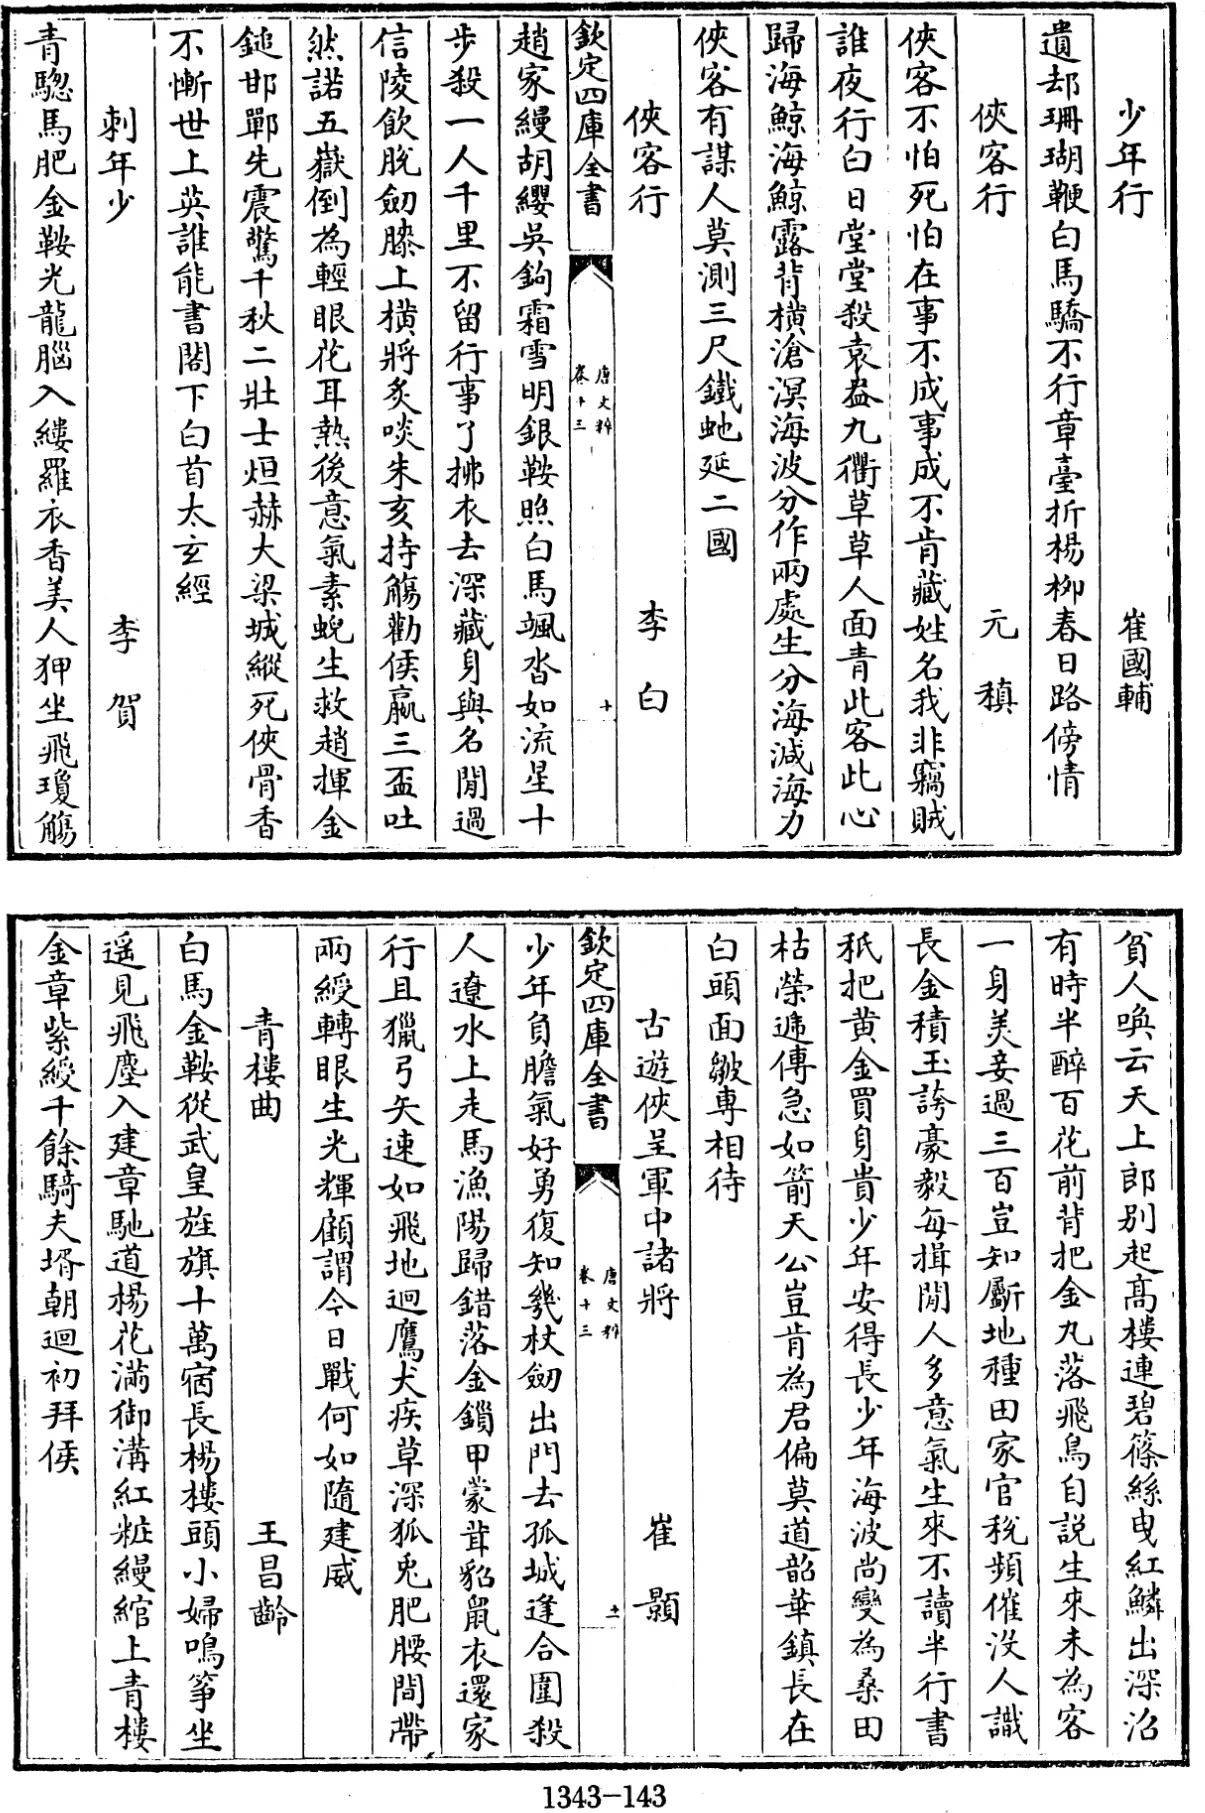 少年行　崔國輔
遺却珊瑚鞭白馬驕不行章臺折楊柳春日路傍情
俠客行　元稹
俠客不怕死怕在事不成事成不肯藏姓名我非竊賊
誰夜行白日堂堂殺袁盎九衢草草人面青此客此心
歸海鯨海鯨露背橫滄溟海波分作兩處生分海減海力
俠客有謀人莫測三尺鐵虵延二國
俠客行　李白
欽定四庫全書　唐文粹卷十三　十
趙家縵胡纓吳鉤霜雪明銀鞍照白馬颯沓如流星十
步殺一人千里不留行事了拂衣去深藏身與名閒過
信陵飲脫劒膝上橫將炙啖朱亥持觴勸侯嬴三盃吐
然諾五嶽倒為輕眼花耳熱後意氣素蜺生救趙揮金
鎚邯鄲先震驚千秋二壯士烜赫大梁城縱死俠骨香
不慚世上英誰能書閣下白首太玄經
刺年少　李賀
青騘馬肥金鞍光龍腦入縷羅衣香美人狎坐飛瓊觴
貧人喚云天上郎別起髙樓連碧篠絲曳紅鱗出深沼
有時半醉百花前背把金丸落飛鳥自説生來未為客
一身美妾過三百豈知斸地種田家官稅頻催沒人識
長金積玉誇豪毅每揖閒人多意氣生來不讀半行書
秖把黄金買身貴少年安得長少年海波尚變為桑田
枯榮遞傳急如箭天公豈肯為君偏莫道韶華鎮長在
白頭面皺專相待
古遊俠呈軍中諸將　崔顥
欽定四庫全書　唐文粹卷十三　十一
少年負膽氣好勇復知幾杖劒出門去孤城逢合圍殺
人遼水上走馬漁陽歸錯落金鎖甲蒙茸貂鼠衣還家
行且獵弓矢速如飛地迥鷹犬疾草深狐兎肥腰間帶
兩綬轉眼生光輝顧謂今日戰何如隨建威
青樓曲　王昌齡
白馬金鞍從武皇旌旗十萬宿長楊樓頭小婦鳴箏坐
遥見飛塵入建章馳道楊花滿御溝紅粧縵綰上青樓
金章紫綬千餘騎夫壻朝迴初拜侯
1343-143